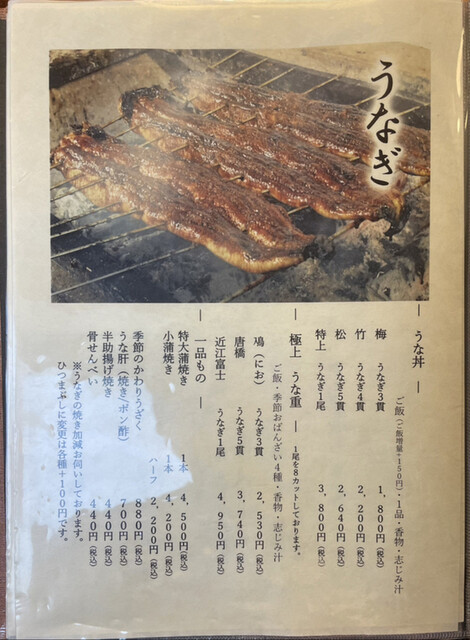 うなぎ
― うな丼 ―
ご飯(ご飯増量+150円)・1品・香物・志じみ汁
梅 うなぎ3貫 1,800円(税込)
竹 うなぎ4貫 2,200円(税込)
松 うなぎ5貫 2,640円(税込)
特上 うなぎ1尾 3,800円(税込)
― 極上 うな重 ― 1尾を8カットしております。
ご飯・季節おばんざい4種・香物・志じみ汁
鳰(にお) うなぎ3貫 2,530円(税込)
唐橋 うなぎ5貫 3,740円(税込)
近江富士 うなぎ1尾 4,950円(税込)
― 一品もの ―
特大蒲焼き 1本 4,500円(税込)
小蒲焼き 1本 4,200円(税込)
ハーフ 2,200円(税込)
季節のかわりうざく 880円(税込)
うな肝(焼き/ポン酢) 700円(税込)
半助揚げ焼き 440円(税込)
骨せんべい 440円(税込)
※うなぎの焼き加減お伺いしております。
ひつまぶしに変更は各種+100円です。